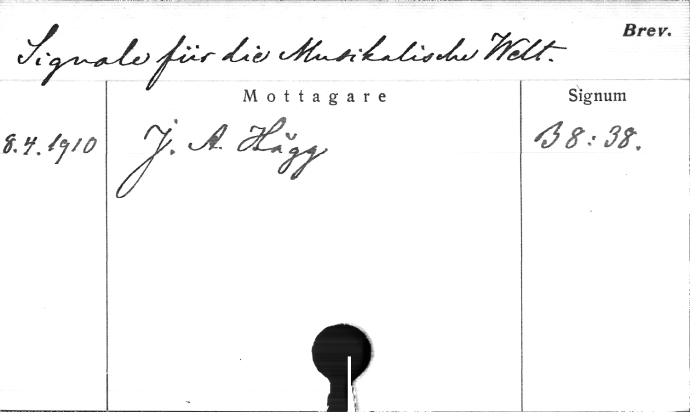 Brev.
Signale für die Musikalische Welt.
Mottagare Signum
8.4.1910 J. A. Hägg B 8:38.